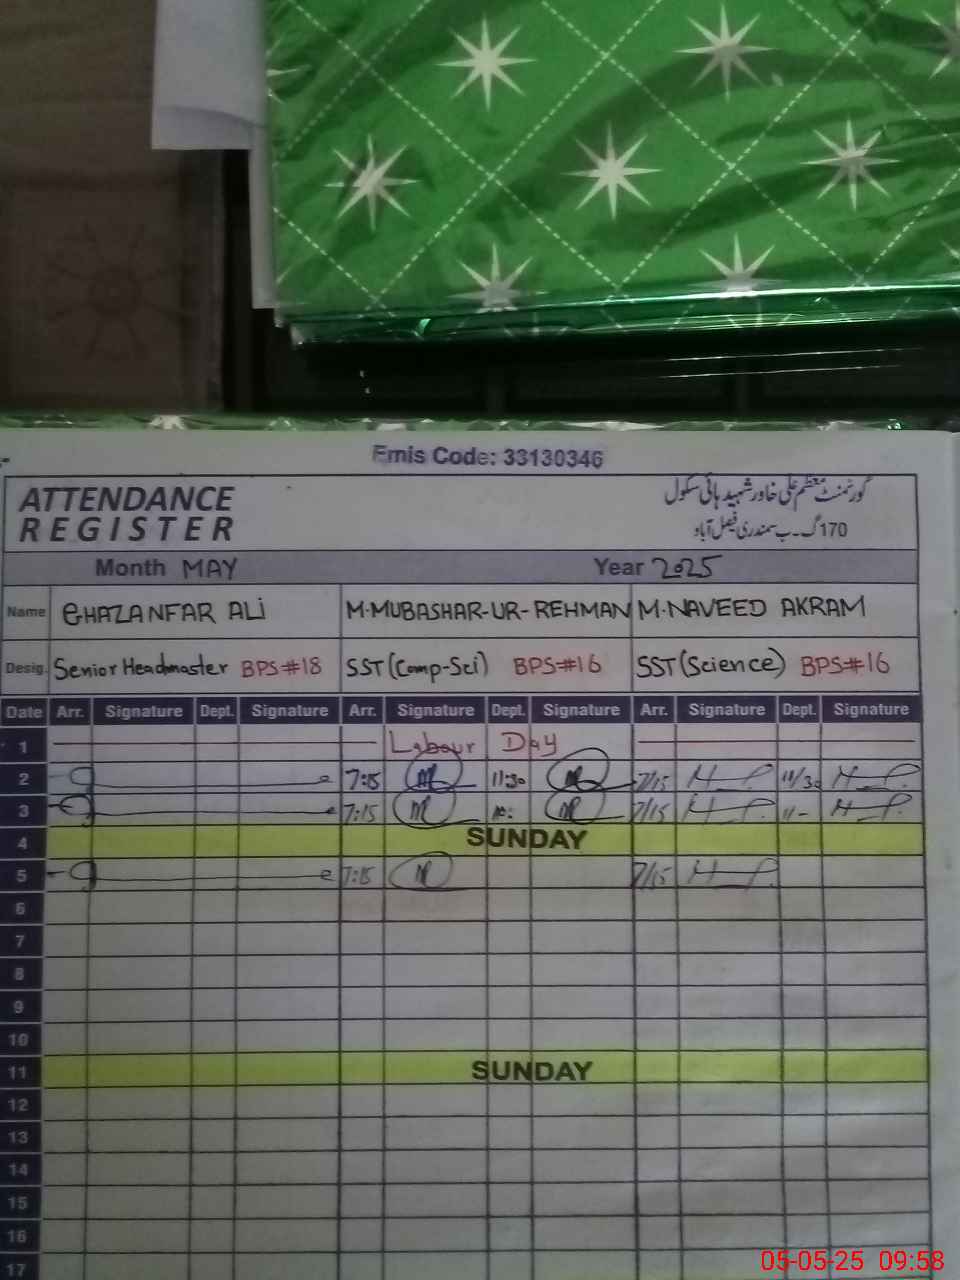 Emis Code: 33130346
ATTENDANCE
REGISTER
گورنمنٹ معظم علی خاور شہید ہائی سکول
170 گ۔ب سمندری فیصل آباد
Month MAY Year 2025
Name GHAZANFAR ALi M.MUBASHAR-UR-REHMAN M.NAVEED AKRAM
Desig. Senior Headmaster BPS#18 SST(Comp-Sci) BPS#16 SST(Science) BPS#16
Date Arr. Signature Dept. Signature Arr. Signature Dept. Signature Arr. Signature Dept. Signature
1 Labour Day
2 7:15 11:30 7/15 11/30
3 7:15 7/15 11-
4 SUNDAY
5 7:15 7/15
6
7
8
9
10
11 SUNDAY
12
13
14
15
16
17
05-05-25 09:58